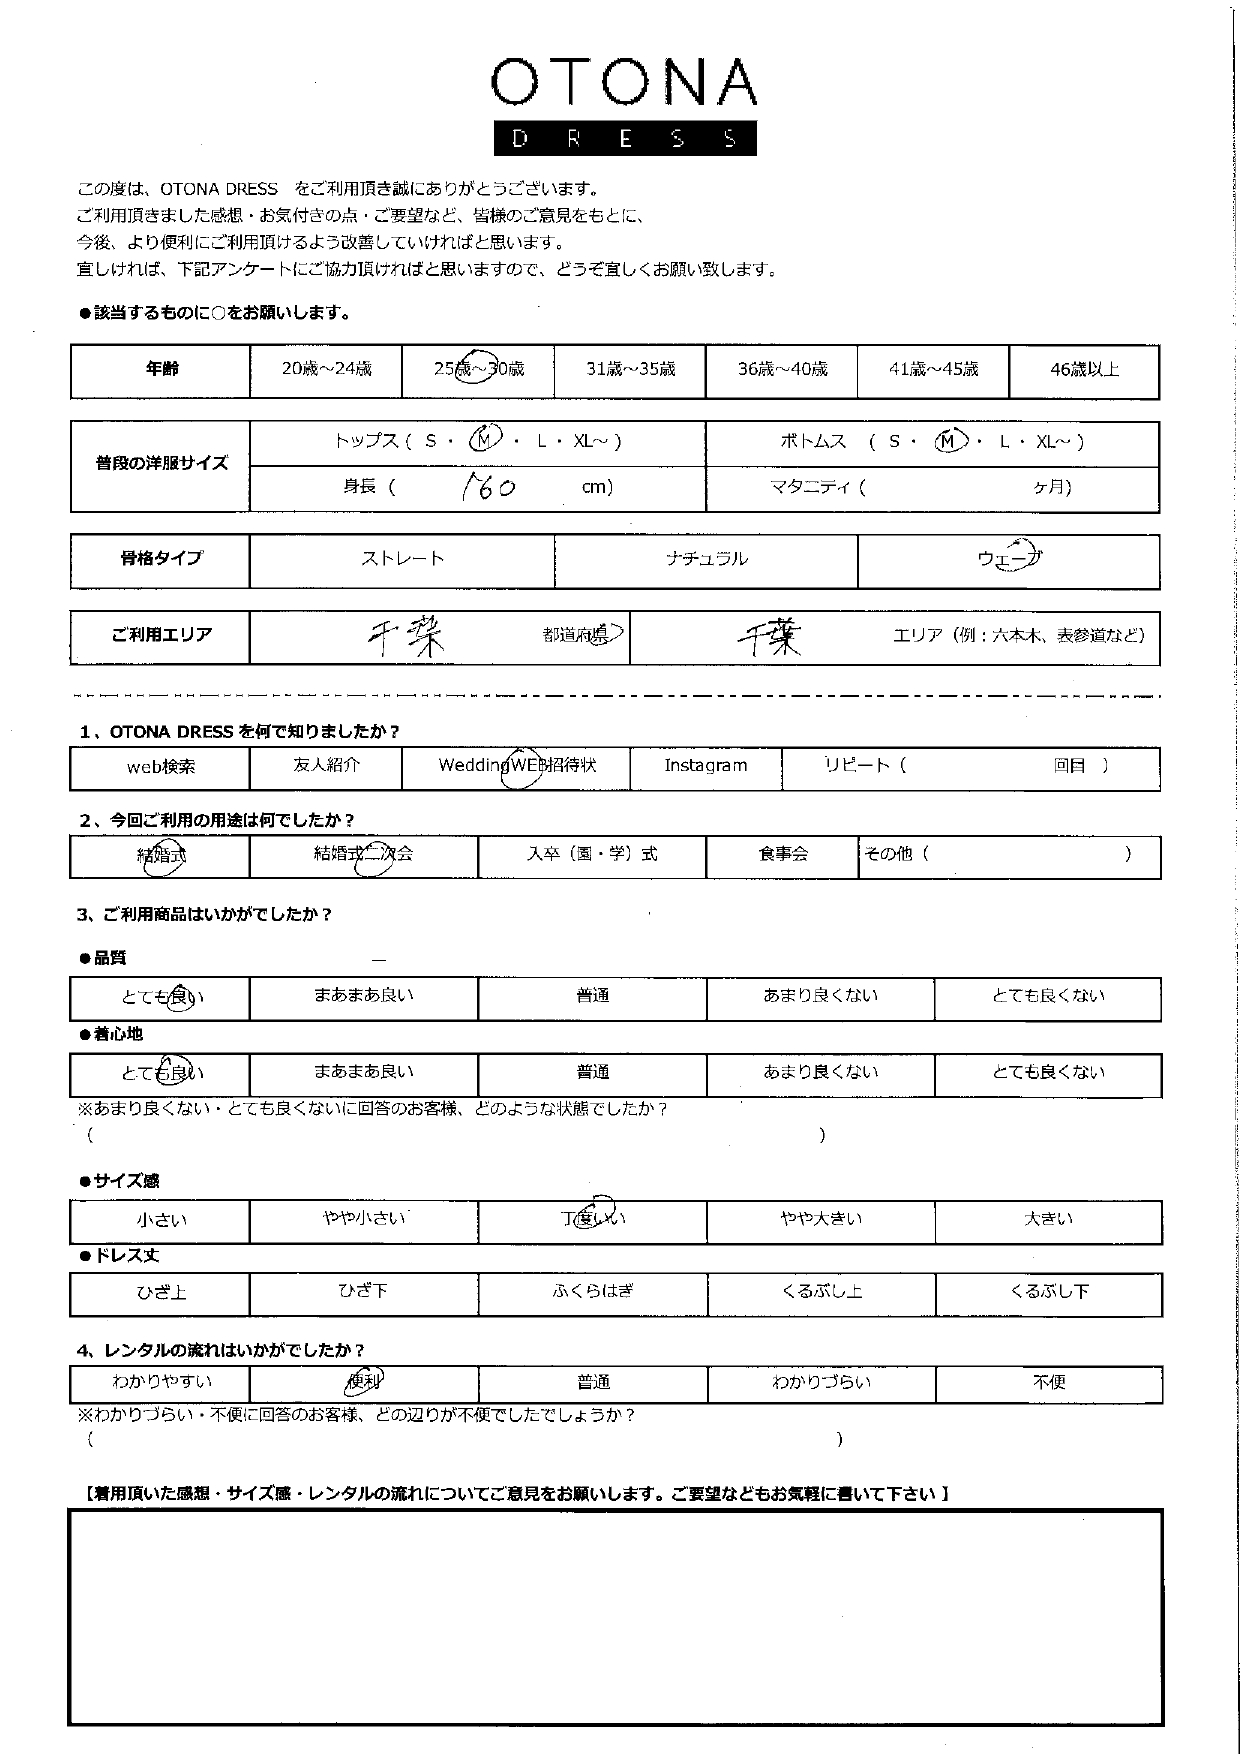 OTONA
DRESS
この度は、OTONA DRESS をご利用頂き誠にありがとうございます。
ご利用頂きました感想・お気付きの点・ご要望など、皆様のご意見をもとに、
今後、より便利にご利用頂けるよう改善していければと思います。
宜しければ、下記アンケートにご協力頂ければと思いますので、どうぞ宜しくお願い致します。
●該当するものに○をお願いします。
年齢 20歳～24歳 25歳～30歳 31歳～35歳 36歳～40歳 41歳～45歳 46歳以上
普段の洋服サイズ トップス ( S ・ M ・ L ・ XL～ ) ボトムス ( S ・ M ・ L ・ XL～ )
身長 ( 160 cm) マタニティ ( ヶ月)
骨格タイプ ストレート ナチュラル ウェーブ
ご利用エリア 千葉 都道府県 千葉 エリア（例：六本木、表参道など）
1、OTONA DRESS を何で知りましたか？
web検索 友人紹介 WeddingWEB招待状 Instagram リピート ( 回目 )
2、今回ご利用の用途は何でしたか？
結婚式 結婚式二次会 入卒（園・学）式 食事会 その他 ( )
3、ご利用商品はいかがでしたか？
●品質
とても良い まあまあ良い 普通 あまり良くない とても良くない
●着心地
とても良い まあまあ良い 普通 あまり良くない とても良くない
※あまり良くない・とても良くないに回答のお客様、どのような状態でしたか？
( )
●サイズ感
小さい やや小さい 丁度いい やや大きい 大きい
●ドレス丈
ひざ上 ひざ下 ふくらはぎ くるぶし上 くるぶし下
4、レンタルの流れはいかがでしたか？
わかりやすい 便利 普通 わかりづらい 不便
※わかりづらい・不便に回答のお客様、どの辺りが不便でしたでしょうか？
( )
【着用頂いた感想・サイズ感・レンタルの流れについてご意見をお願いします。ご要望などもお気軽に書いて下さい 】